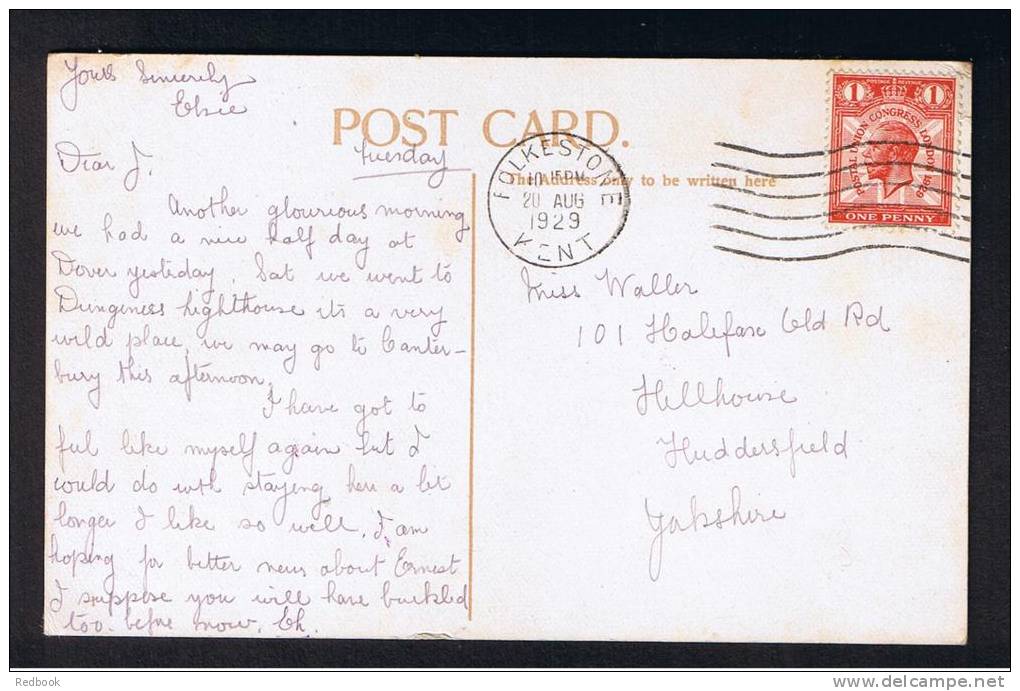 Yours Sincerely
Elsie
POST CARD.
Tuesday
Dear J.
The Address only to be written here
Another glourious morning
we had a nice half day at
Dover yestiday. Sat we went to
Dungeness lighthouse its a very
wild place, we may go to Canter-
bury this afternoon.
I have got to
ful like myself again but I
would do with staying here a bit
longer I like so well. I am
hoping for better news about Ernest
I suppose you will have buckled
too. before now. Eh.
FOLKESTONE
10. 15PM
20 AUG
1929
KENT
1 POSTAGE REVENUE 1
POSTAL UNION CONGRESS LONDON 1929
ONE PENNY
Miss Waller
101 Halifax Old Rd
Hillhouse
Huddersfield
Yorkshire
Redbook
delcampe.net